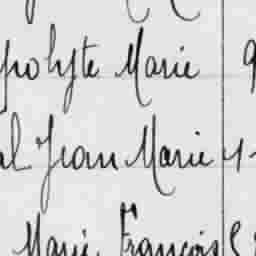 polyte Marie 9
al Jean Marie 4
Marie François